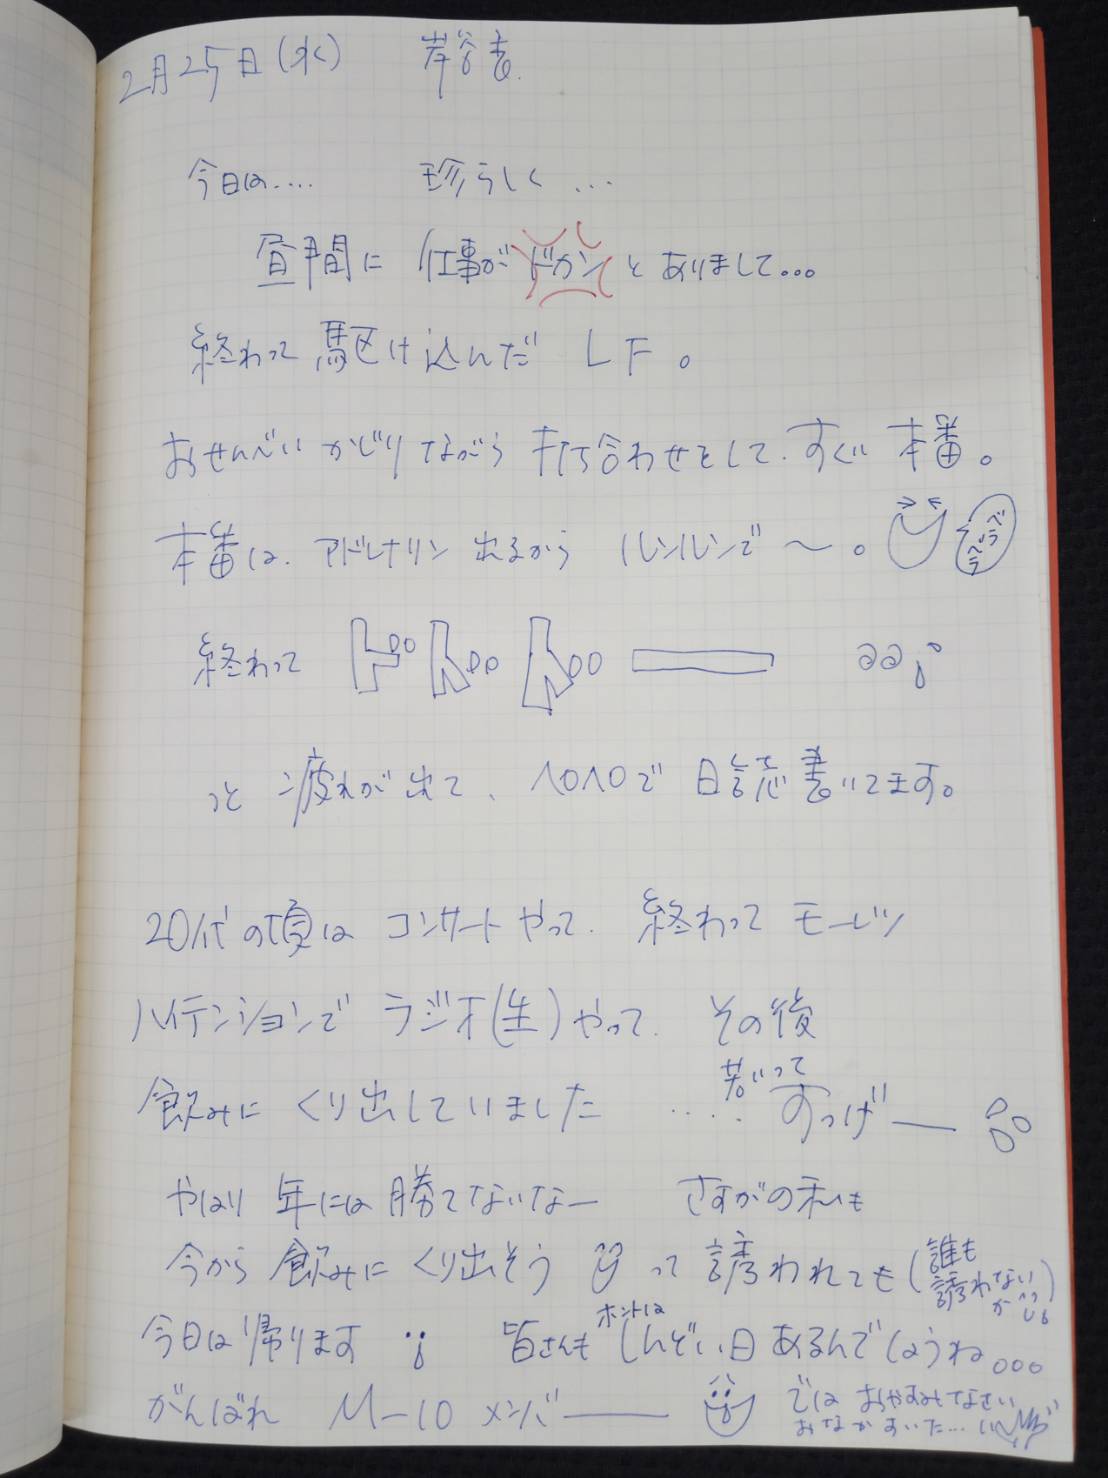 2月25日(水) 岸谷香.
今日は.... 珍らしく ...
昼間に 仕事が ドカン と ありまして...
終わって 駆け込んだ LF。
おせんべい かじりながら 打ち合わせをして、すぐ 本番。
本番は、アドレナリン 出るから ルンルンで 〜。
ペラペラ
終わって ドドド
っと 疲れが出て、ヘロヘロで 日誌書いてます。
20代の頃は コンサートやって、終わって モーレツ
ハイテンションで ラジオ(生)やって、その後
飲みに くり出していました .... 若いって すっげー
やはり 年には 勝てないなー さすがの私も
今から 飲みに くり出そう って 誘われても (誰も誘わないが)
今日は 帰ります 皆さんも ホントは しんどい日 あるんでしょうね。。。
がんばれ M-10 メンバー では おやすみなさい
おなかすいた...